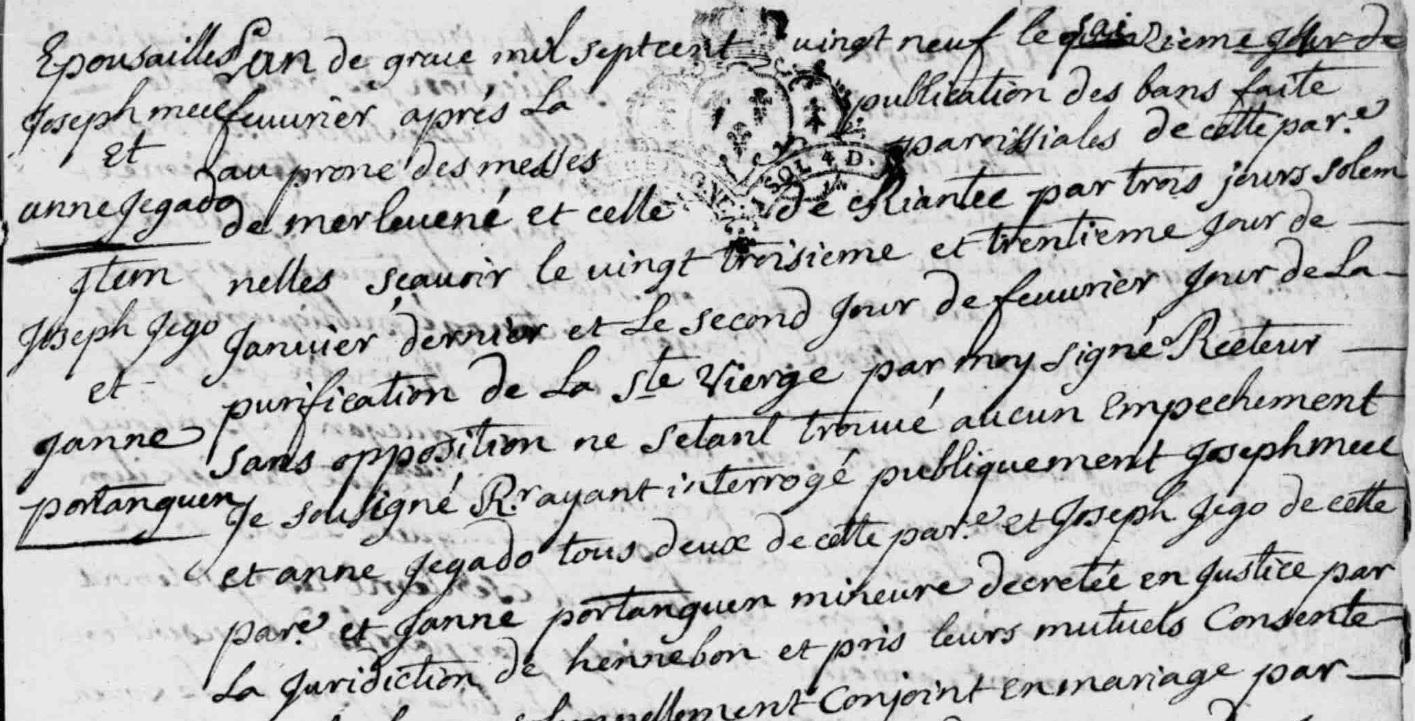 Epousailles
Joseph meue
et
anne Jegado
Jtem
Joseph Jego
et
Janne
portanguen
Lan de grace mil septcent vingt neuf le seizieme Jour de
feuurier aprés La publication des bans faite
au prone des messes paroissiales de cette par.e
de merleuené et celle de Riantec par trois jours solem
nelles sçauoir le vingt troisieme et trentieme Jour de
Januier dernier et Le second Jour de feuurier Jour de La
purification de La Ste Vierge par moy signé Recteur
sans opposition ne setant trouué aucun Empechement
Je sousigné R.r ayant interrogé publiquement Joseph meue
et anne Jegado tous deux de cette par.e et Joseph Jego de cette
par.e et Janne portanguen mineure decretée en Justice par
La Juridiction de hennebon et pris leurs mutuels Consente
solemnellement Conjoint en mariage par
SOL 4 D.